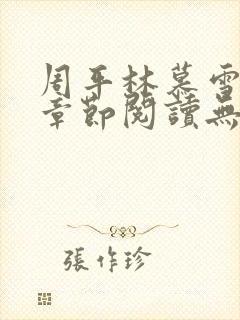 周平林慕雪
章節閱讀無
張作珍